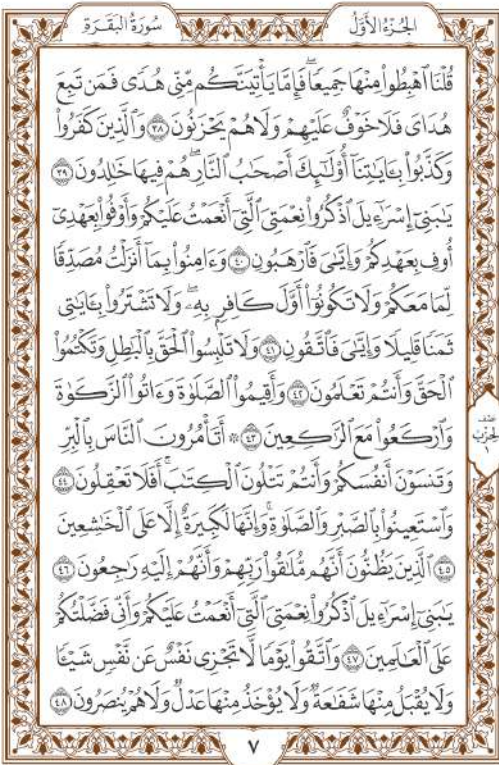 سُورَةُ البَقَرَةِ
الجُزْءُ الأَوَّلُ
قُلْنَا ٱهْبِطُوا۟ مِنْهَا جَمِيعًا ۖ فَإِمَّا يَأْتِيَنَّكُم مِّنِّى هُدًى فَمَن تَبِعَ
هُدَاىَ فَلَا خَوْفٌ عَلَيْهِمْ وَلَا هُمْ يَحْزَنُونَ ٣٨ وَٱلَّذِينَ كَفَرُوا۟
وَكَذَّبُوا۟ بِـَٔايَـٰتِنَآ أُو۟لَـٰٓئِكَ أَصْحَـٰبُ ٱلنَّارِ ۖ هُمْ فِيهَا خَـٰلِدُونَ ٣٩
يَـٰبَنِىٓ إِسْرَٰٓءِيلَ ٱذْكُرُوا۟ نِعْمَتِىَ ٱلَّتِىٓ أَنْعَمْتُ عَلَيْكُمْ وَأَوْفُوا۟ بِعَهْدِىٓ
أُوفِ بِعَهْدِكُمْ وَإِيَّـٰىَ فَٱرْهَبُونِ ٤٠ وَءَامِنُوا۟ بِمَآ أَنزَلْتُ مُصَدِّقًا
لِّمَا مَعَكُمْ وَلَا تَكُونُوٓا۟ أَوَّلَ كَافِرٍۭ بِهِۦ ۖ وَلَا تَشْتَرُوا۟ بِـَٔايَـٰتِى
ثَمَنًا قَلِيلًا وَإِيَّـٰىَ فَٱتَّقُونِ ٤١ وَلَا تَلْبِسُوا۟ ٱلْحَقَّ بِٱلْبَـٰطِلِ وَتَكْتُمُوا۟
ٱلْحَقَّ وَأَنتُمْ تَعْلَمُونَ ٤٢ وَأَقِيمُوا۟ ٱلصَّلَوٰةَ وَءَاتُوا۟ ٱلزَّكَوٰةَ
وَٱرْكَعُوا۟ مَعَ ٱلرَّٰكِعِينَ ٤٣ ۞ أَتَأْمُرُونَ ٱلنَّاسَ بِٱلْبِرِّ
وَتَنسَوْنَ أَنفُسَكُمْ وَأَنتُمْ تَتْلُونَ ٱلْكِتَـٰبَ ۚ أَفَلَا تَعْقِلُونَ ٤٤
وَٱسْتَعِينُوا۟ بِٱلصَّبْرِ وَٱلصَّلَوٰةِ ۚ وَإِنَّهَا لَكَبِيرَةٌ إِلَّا عَلَى ٱلْخَـٰشِعِينَ
٤٥ ٱلَّذِينَ يَظُنُّونَ أَنَّهُم مُّلَـٰقُوا۟ رَبِّهِمْ وَأَنَّهُمْ إِلَيْهِ رَٰجِعُونَ ٤٦
يَـٰبَنِىٓ إِسْرَٰٓءِيلَ ٱذْكُرُوا۟ نِعْمَتِىَ ٱلَّتِىٓ أَنْعَمْتُ عَلَيْكُمْ وَأَنِّى فَضَّلْتُكُمْ
عَلَى ٱلْعَـٰلَمِينَ ٤٧ وَٱتَّقُوا۟ يَوْمًا لَّا تَجْزِى نَفْسٌ عَن نَّفْسٍ شَيْـًٔا
وَلَا يُقْبَلُ مِنْهَا شَفَـٰعَةٌ وَلَا يُؤْخَذُ مِنْهَا عَدْلٌ وَلَا هُمْ يُنصَرُونَ ٤٨
نصف
الحزب
١
٧